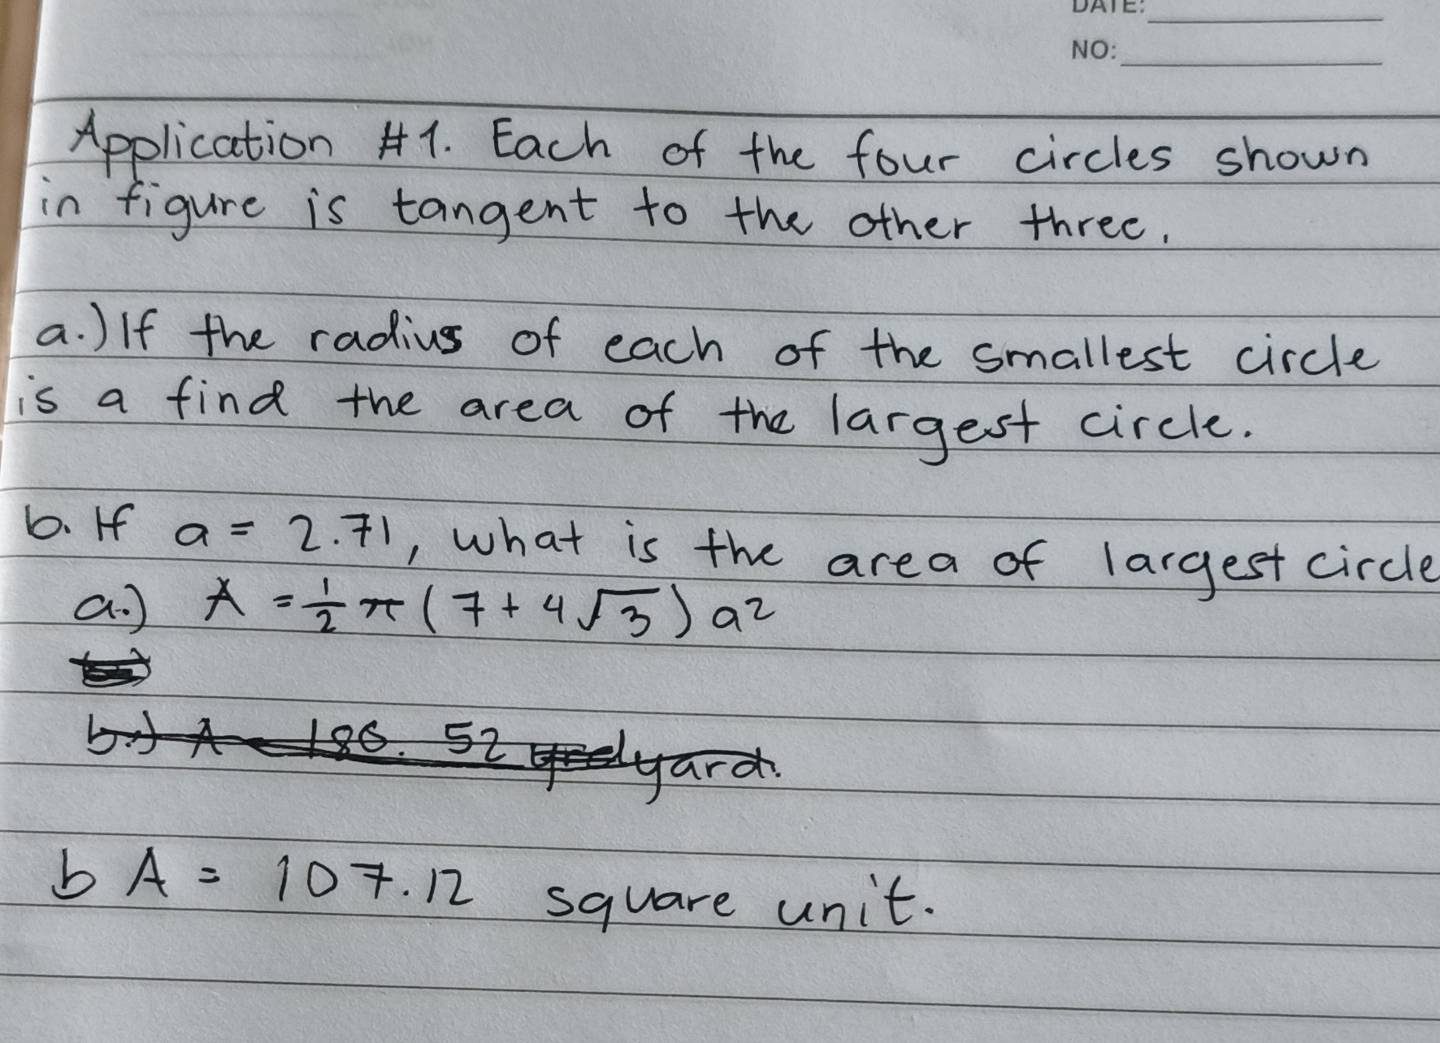 DATE:
NO:
Application #1. Each of the four circles shown
in figure is tangent to the other three.
a.) If the radius of each of the smallest circle
is a find the area of the largest circle.
b. If a = 2.71, what is the area of largest circle
a.) A = 1/2 π (7 + 4√3) a2
b.) A = 186.52 yard.
b A = 107.12 square unit.